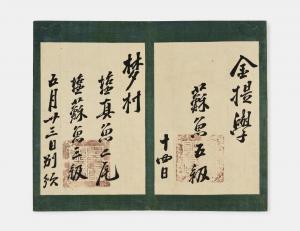 金提學
蘇魚五級
十四日
夢村
塩真魚二尾
塩蘇魚三級
五月卄三日別須